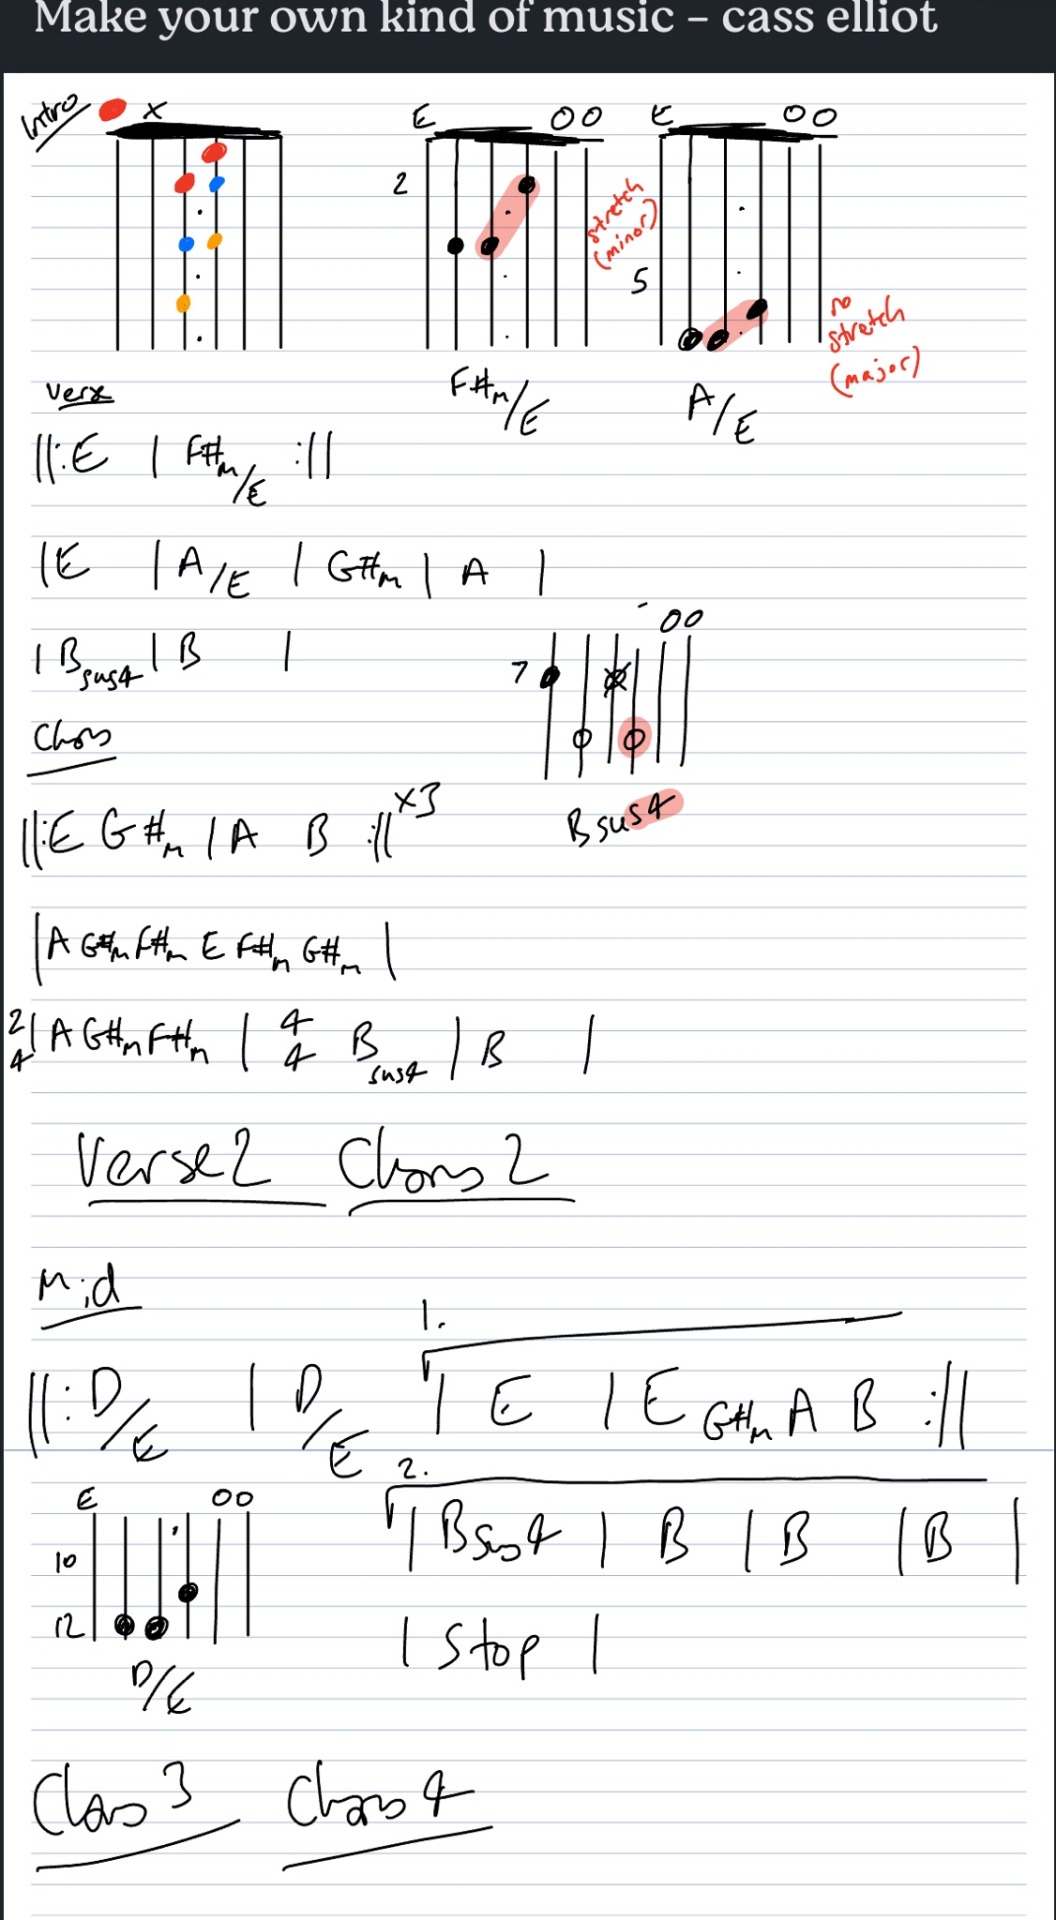 Make your own kind of music – cass elliot
Intro X E OO E OO
2
stretch
(minor)
5
no
stretch
(major)
F#m/E A/E
Verse
||: E | F#m/E :||
| E | A/E | G#m | A |
OO
| Bsus4 | B |
7 X
Chorus
||: E G#m | A B :|| x3
Bsus4
| A G#m F#m E F#m G#m |
2/4 | A G#m F#m | 4/4 Bsus4 | B |
Verse 2 Chorus 2
Mid
1.
||: D/E | D/E | E | E G#m A B :||
2.
E OO
| Bsus4 | B | B | B |
10
12
| Stop |
D/E
Chorus 3 Chorus 4